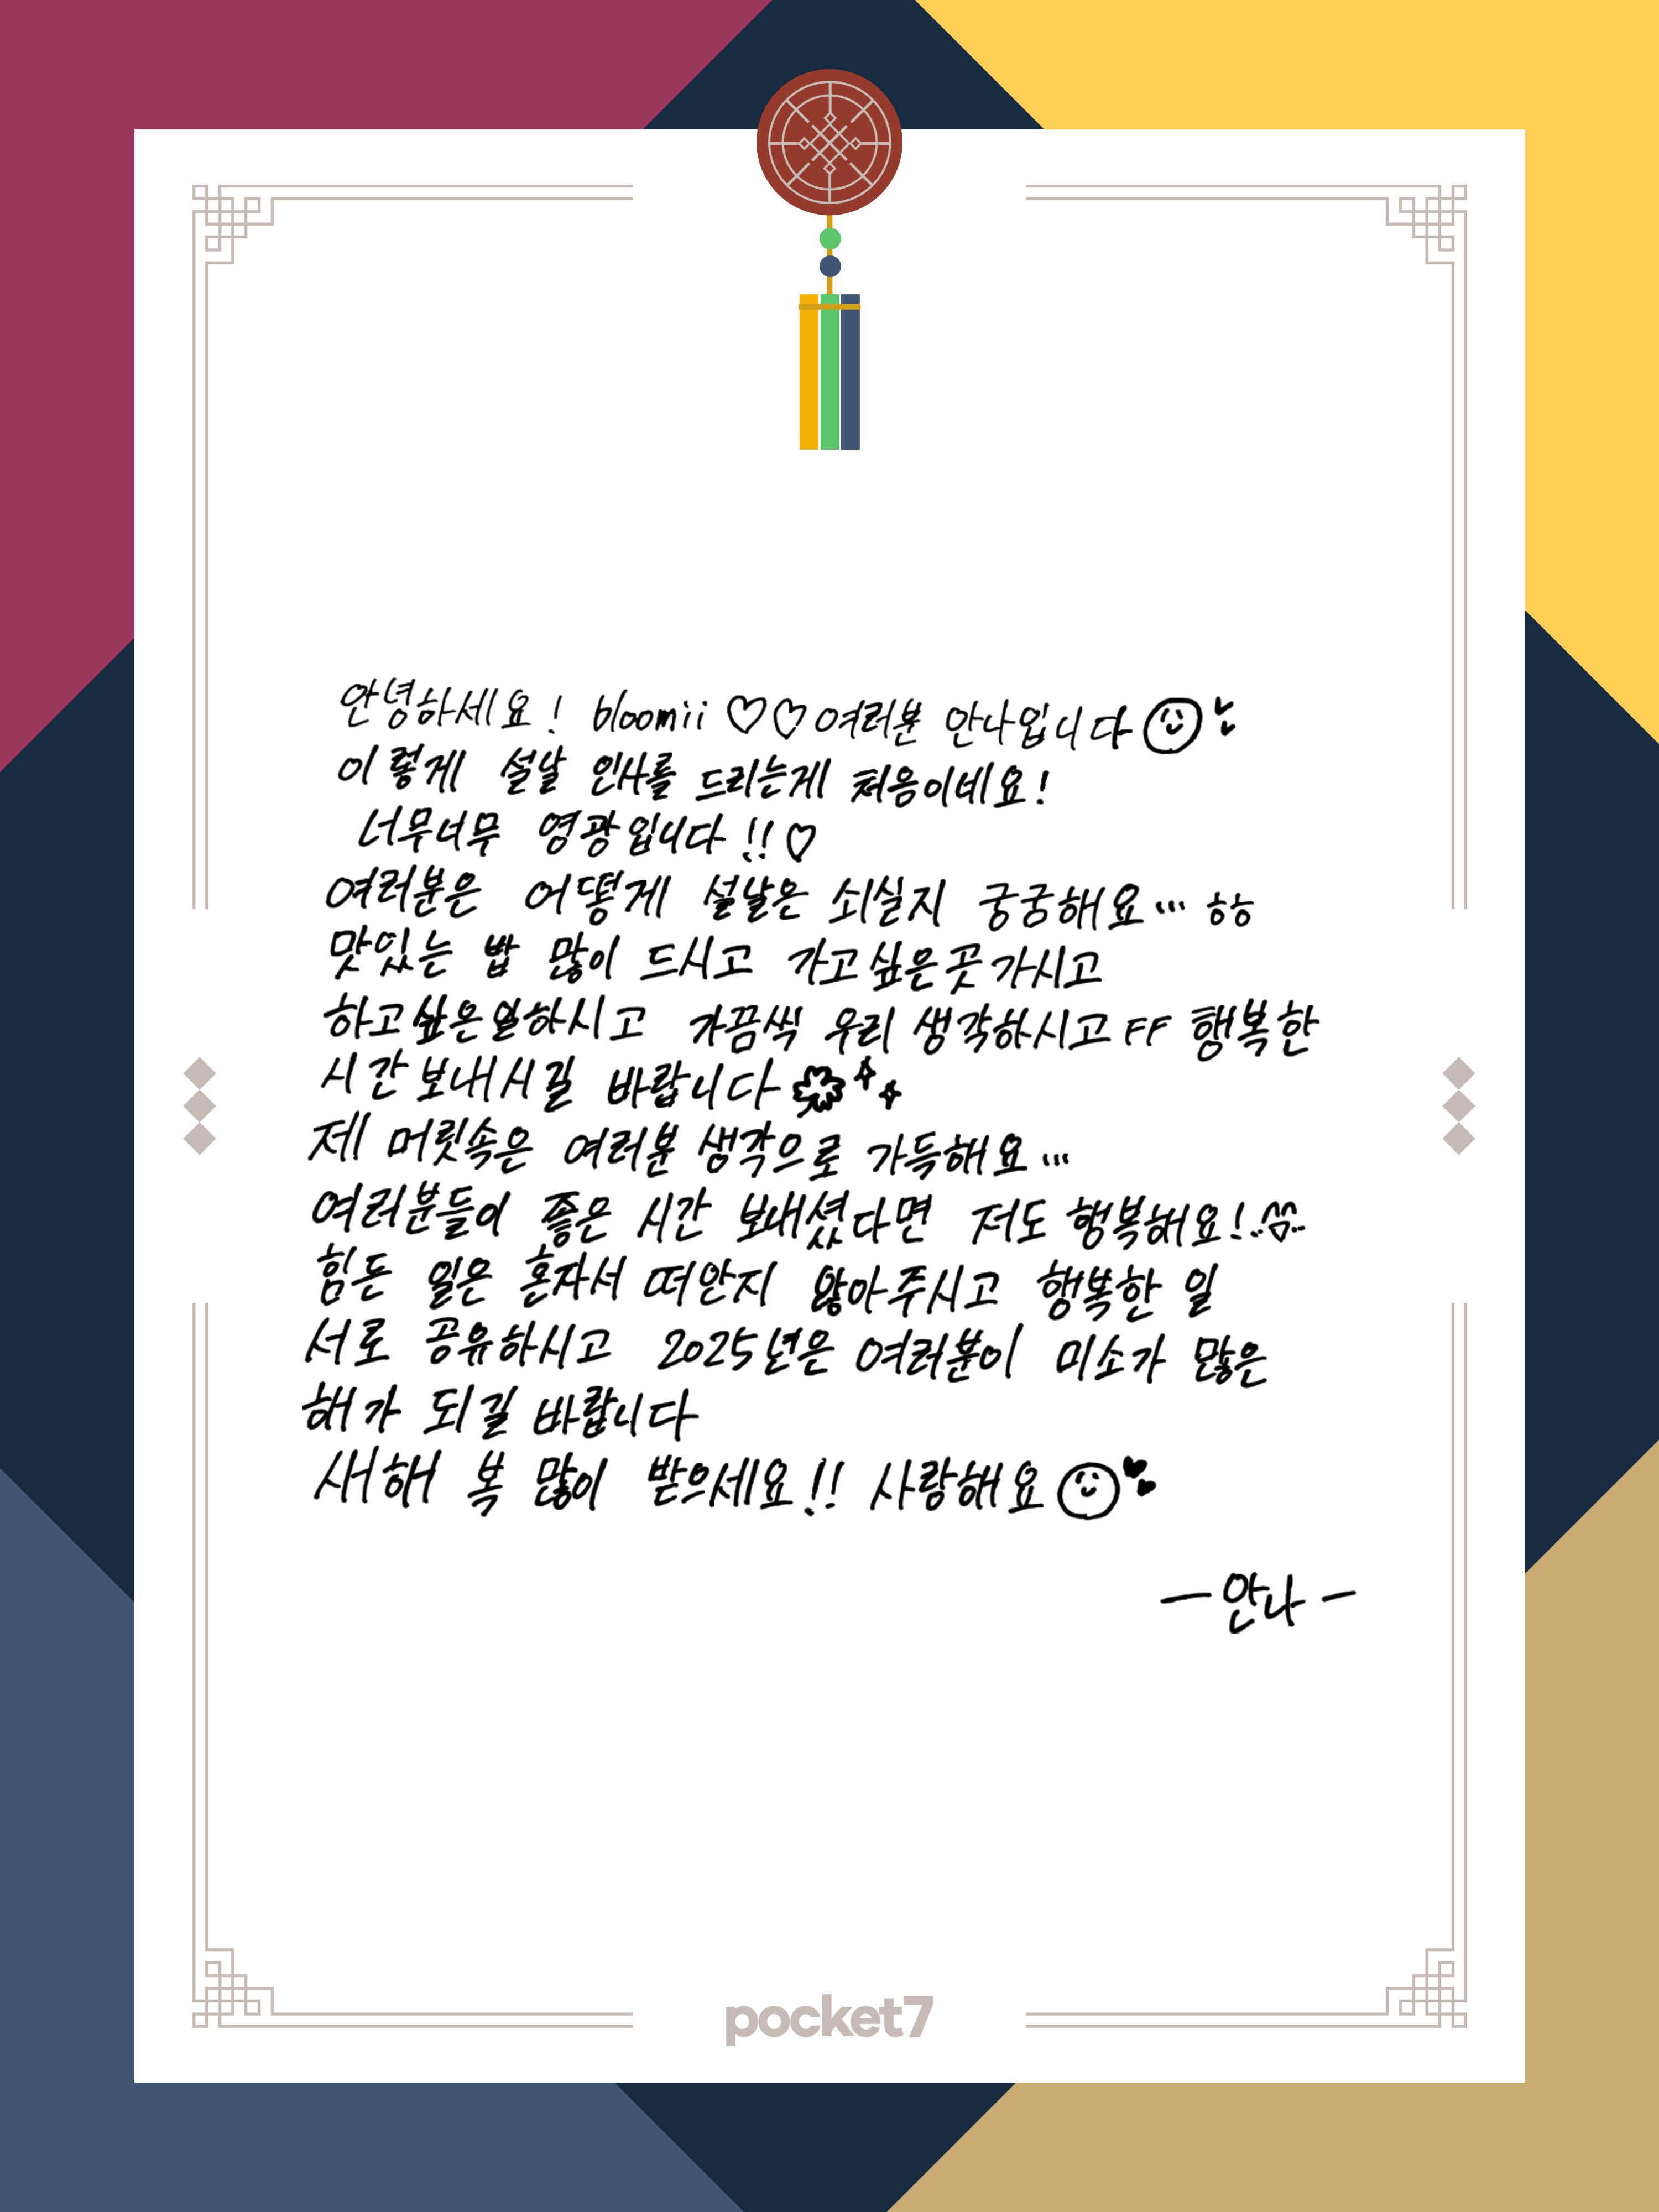 안녕하세요! bloomii ♡♡여러분 안나입니다
이렇게 설날 인사를 드리는게 처음이네요!
너무너무 영광입니다!!♡
여러분은 어떻게 설날은 쇠실지 궁궁해요... ㅎㅎ
맛있는 밥 많이 드시고 가고싶은곳가시고
하고싶은일하시고 가끔씩 우리 생각하시고 FF 행복한
시간보내시길 바랍니다
제 머릿속은 여러분 생각으로 가득해요...
여러분들이 좋은 시간 보내셨다면 저도 행복해요!
힘든 일은 혼자서 떠안지 않아주시고 행복한 일
서로 공유하시고 2025년은 여러분이 미소가 많은
해가 되길 바랍니다
새해 복 많이 받으세요!! 사랑해요
—안나—
pocket7